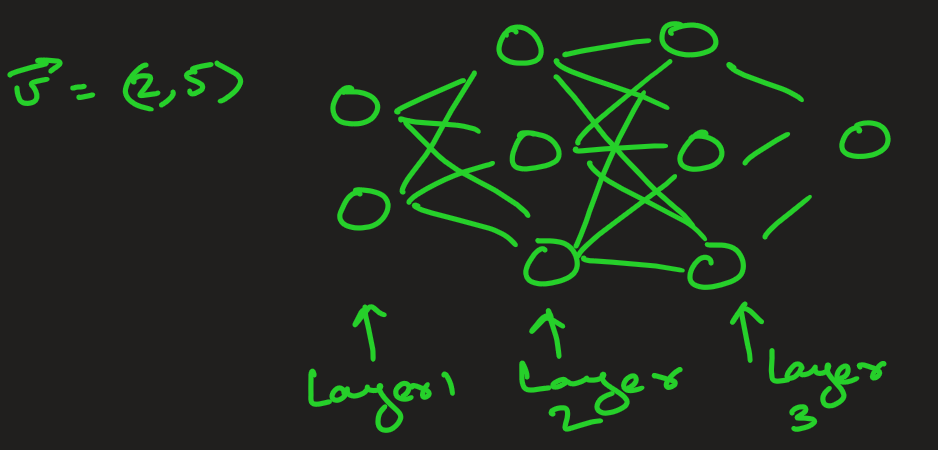 v⃗ = (2, 5)
Layer 1
Layer 2
Layer 3